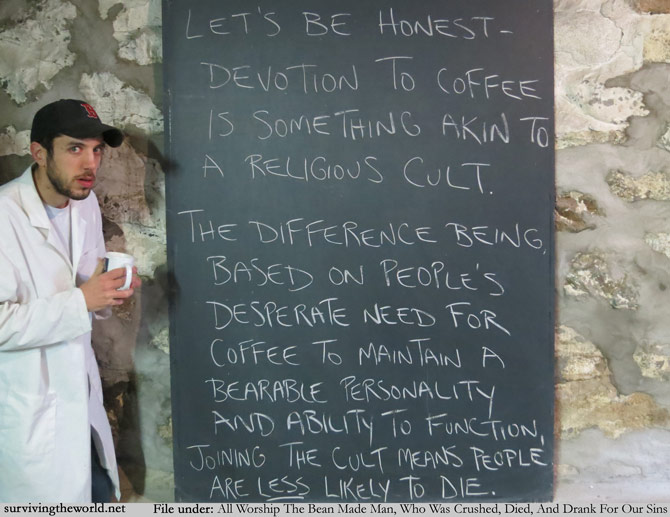 LET'S BE HONEST-
DEVOTION TO COFFEE
IS SOMETHING AKIN TO
A RELIGIOUS CULT.
THE DIFFERENCE BEING,
BASED ON PEOPLE'S
DESPERATE NEED FOR
COFFEE TO MAINTAIN A
BEARABLE PERSONALITY
AND ABILITY TO FUNCTION,
JOINING THE CULT MEANS PEOPLE
ARE LESS LIKELY TO DIE.
survivingtheworld.net File under: All Worship The Bean Made Man, Who Was Crushed, Died, And Drank For Our Sins